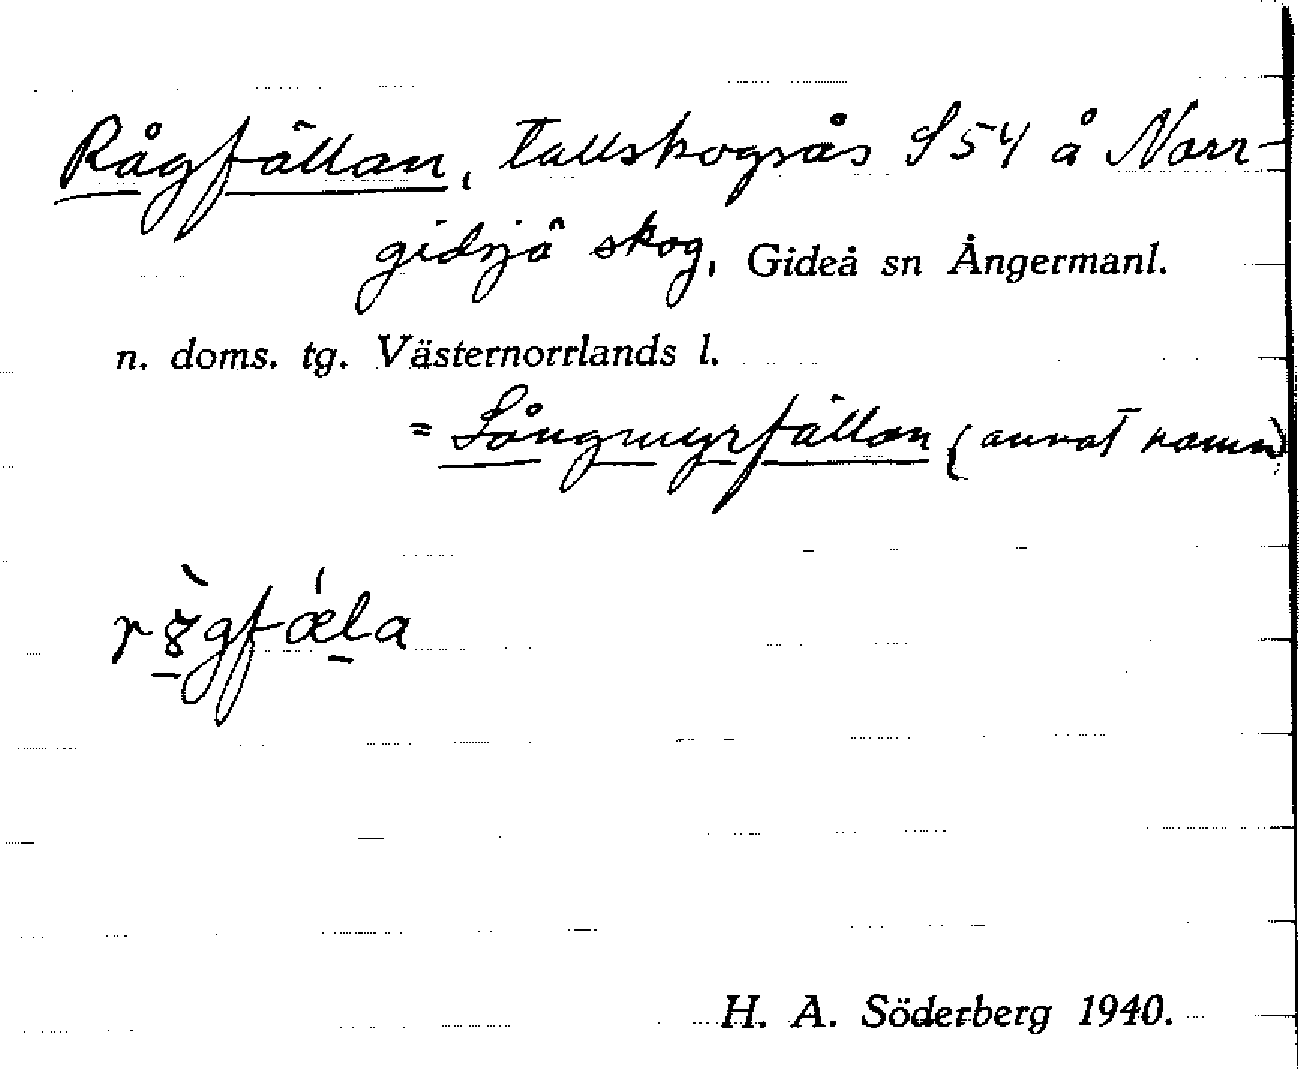 Rågfällan, tallskogsås S 54 å Norr-
gidsjö skog, Gideå sn Ångermanl.
n. doms. tg. Västernorrlands l.
= Långmyrfällan (annat namn)
H. A. Söderberg 1940.